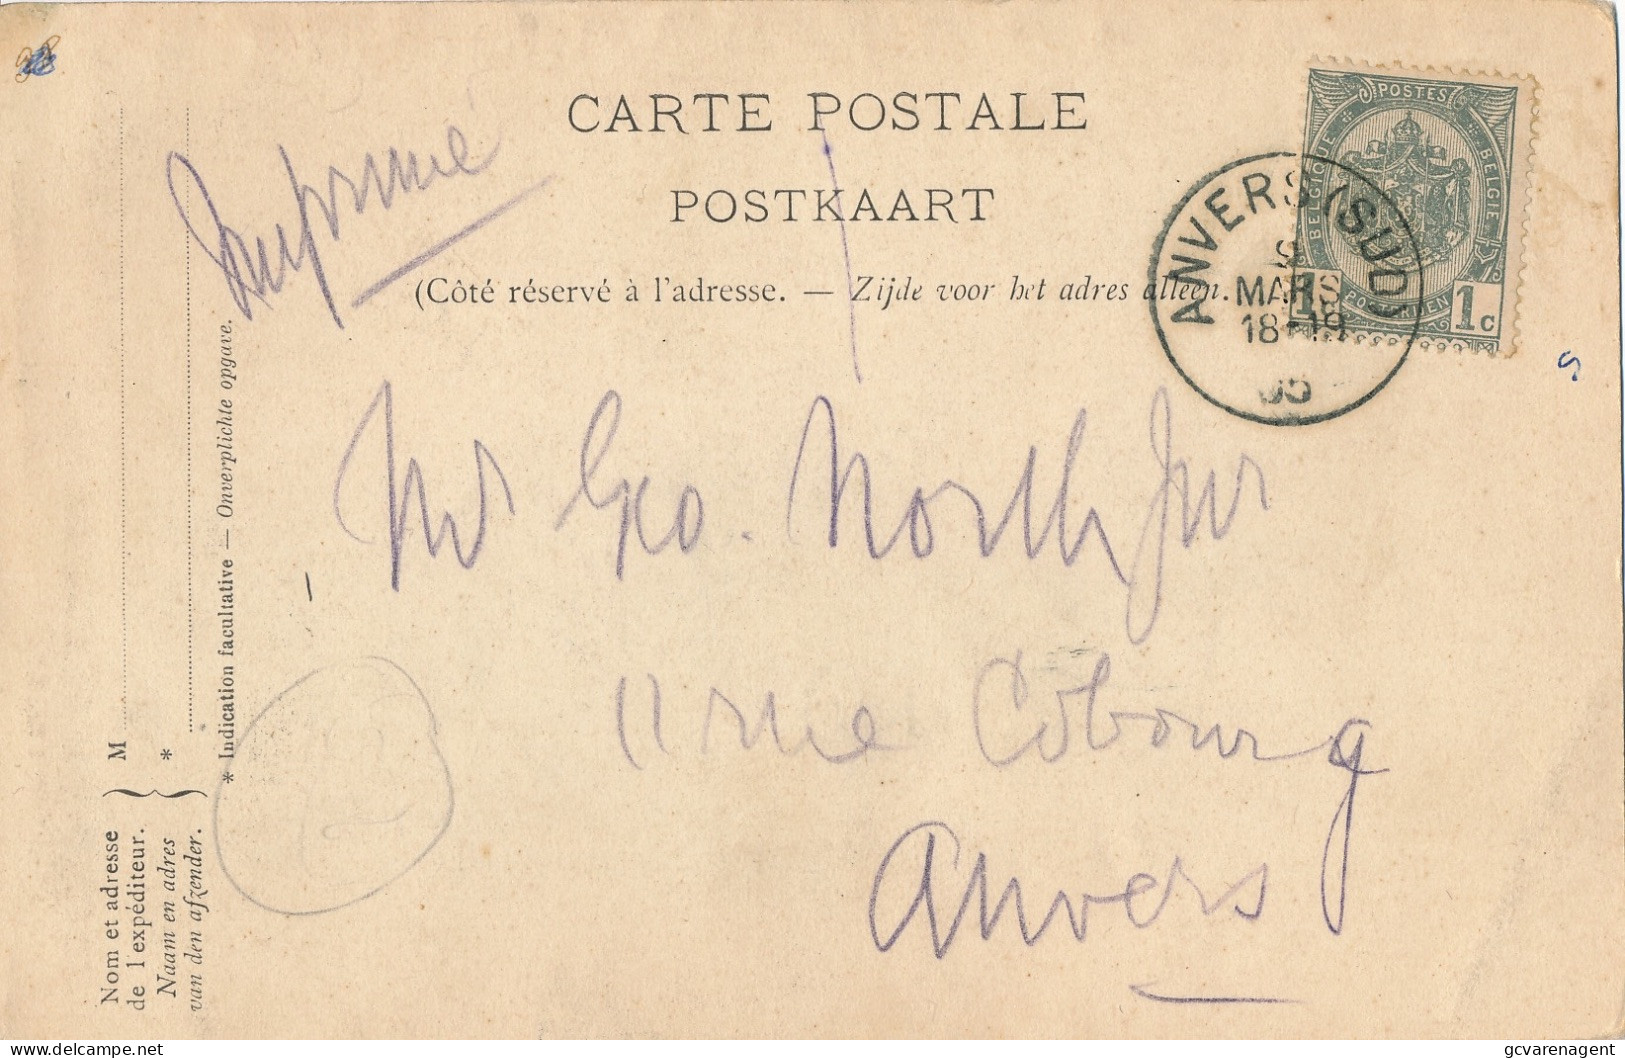 CARTE POSTALE
POSTKAART
(Côté réservé à l'adresse. — Zijde voor het adres alleen.
Imprimé
POSTES
BELGIQUE
BELGIE
1 POSTERIJEN 1c
ANVERS (SUD)
9
MARS
18-19
05
Mr Geo. North Jnr
11 rue Cobourg
Anvers
M
*
* Indication facultative — Onverplichte opgave.
Nom et adresse
de l'expéditeur.
Naam en adres
van den afzender.
s
delcampe.net
gcvarenagent